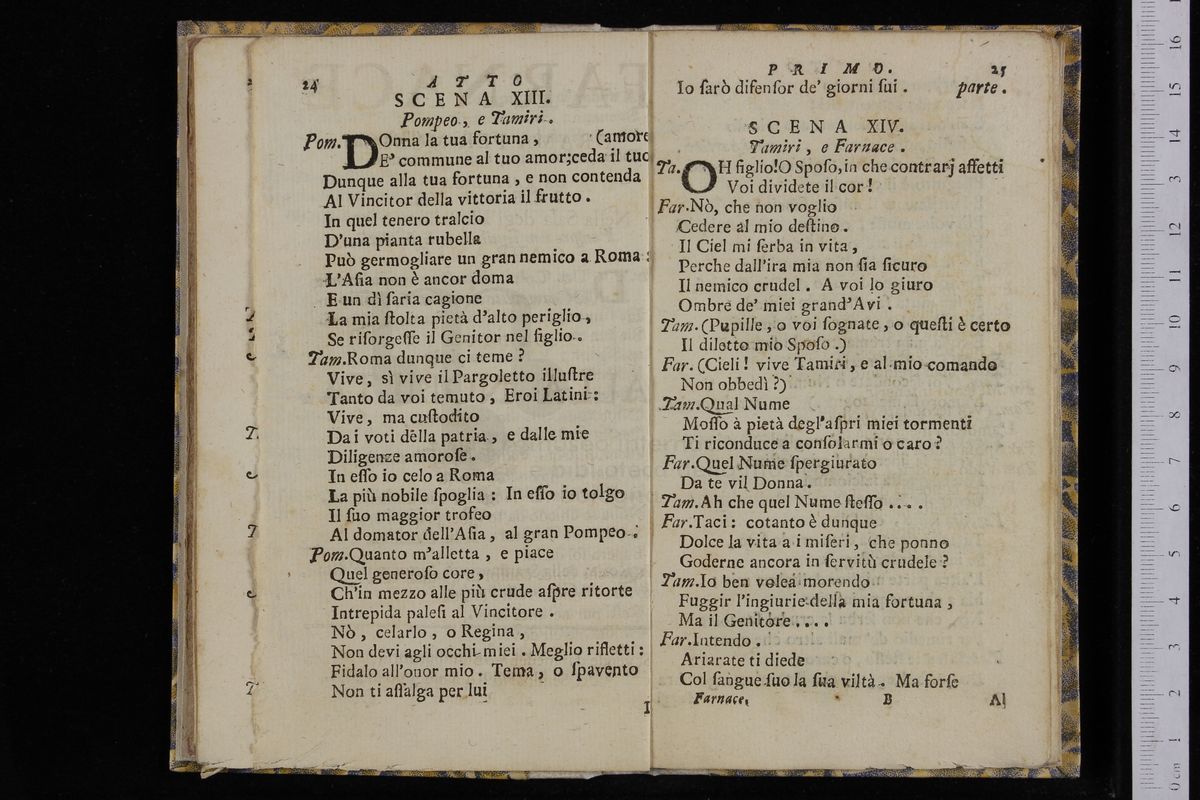 24 ATTO
SCENA XIII.
Pompeo, e Tamiri.
Pom. DOnna la tua fortuna, (amore
E' commune al tuo amor; ceda il tuo
Dunque alla tua fortuna, e non contenda
Al Vincitor della vittoria il frutto.
In quel tenero tralcio
D'una pianta rubella
Può germogliare un gran nemico a Roma:
L'Aſia non è ancor doma
E un dì ſaria cagione
La mia ſtolta pietà d'alto periglio,
Se riſorgeſſe il Genitor nel figlio.
Tam. Roma dunque ci teme?
Vive, sì vive il Pargoletto illuſtre
Tanto da voi temuto, Eroi Latini:
Vive, ma cuſtodito
Da i voti della patria, e dalle mie
Diligenze amoroſe.
In eſſo io celo a Roma
La più nobile ſpoglia: In eſſo io tolgo
Il ſuo maggior trofeo
Al domator dell'Aſia, al gran Pompeo.
Pom. Quanto m'alletta, e piace
Quel generoſo core,
Ch'in mezzo alle più crude aſpre ritorte
Intrepida paleſi al Vincitore.
Nò, celarlo, o Regina,
Non devi agli occhi miei. Meglio rifletti:
Fidalo all'onor mio. Tema, o ſpavento
Non ti aſſalga per lui
I
PRIMO. 25
Io ſarò difenſor de' giorni ſui. parte.
SCENA XIV.
Tamiri, e Farnace.
Ta. OH figlio! O Spoſo, in che contrarj affetti
Voi dividete il cor!
Far. Nò, che non voglio
Cedere al mio deſtino.
Il Ciel mi ſerba in vita,
Perche dall'ira mia non ſia ſicuro
Il nemico crudel. A voi lo giuro
Ombre de' miei grand'Avi.
Tam. (Pupille, o voi ſognate, o queſti è certo
Il diletto mio Spoſo.)
Far. (Cieli! vive Tamiri, e al mio comando
Non obbedì?)
Tam. Qual Nume
Moſſo à pietà degl'aſpri miei tormenti
Ti riconduce a conſolarmi o caro?
Far. Quel Nume ſpergiurato
Da te vil Donna.
Tam. Ah che quel Nume ſteſſo ....
Far. Taci: cotanto è dunque
Dolce la vita a i miſeri, che ponno
Goderne ancora in ſervitù crudele?
Tam. Io ben volea morendo
Fuggir l'ingiurie della mia fortuna,
Ma il Genitore ....
Far. Intendo.
Ariarate ti diede
Col ſangue ſuo la ſua viltà. Ma forſe
Farnace, B Al